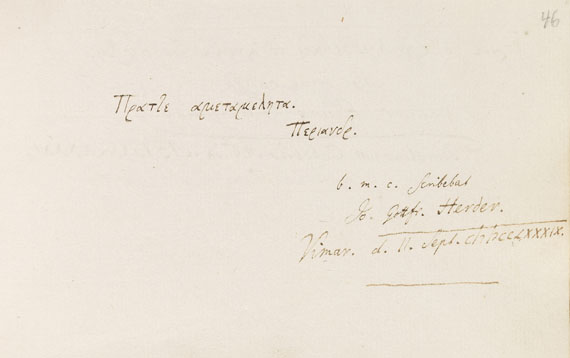 46
Πρατ͞ε αμεταμελητα.
Περιανδρ.
b. m. c. scribebat
Jo. Gottfr. Herder.
Vimar. d. 11. Sept. CIƆIƆCCLXXXIX.